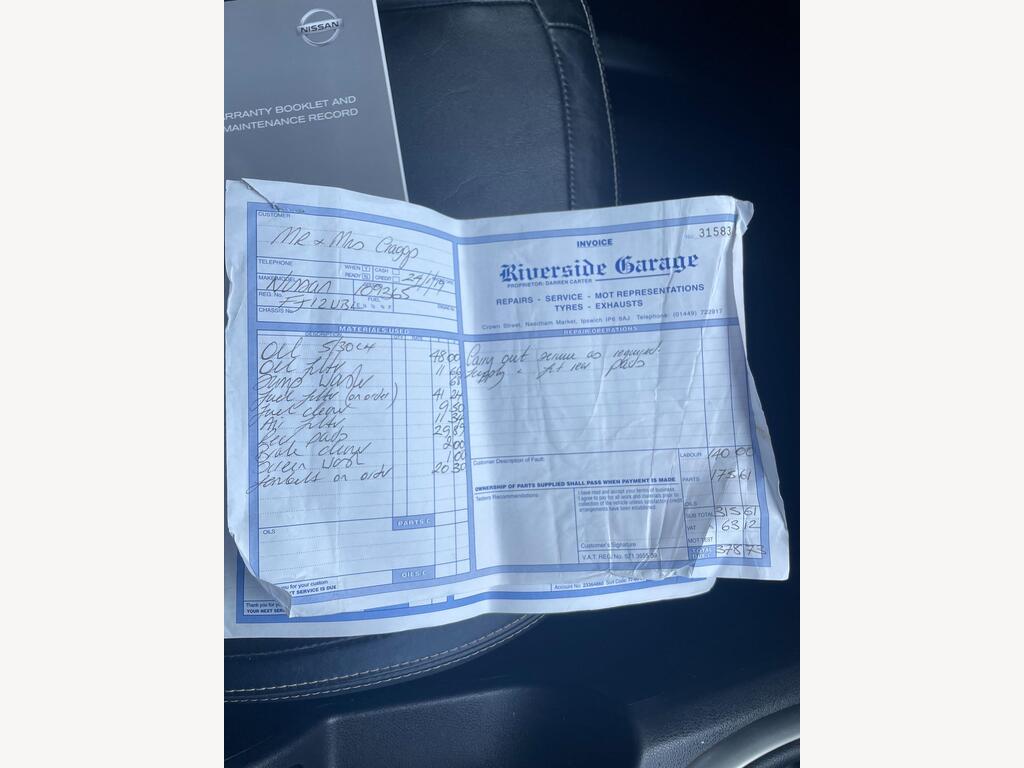 NISSAN
RRANTY BOOKLET AND
MAINTENANCE RECORD
CUSTOMER
MR & MRS Craggs
TELEPHONE
WHEN READY
CASH
CREDIT
24/1/19
MAKE/MODEL
Nissan
109365
REG. No.
FUEL
CHASSIS No.
INVOICE
No. 31583
Riverside Garage
PROPRIETOR: DARREN CARTER
REPAIRS - SERVICE - MOT REPRESENTATIONS
TYRES - EXHAUSTS
Crown Street, Needham Market, Ipswich IP6 8AJ Telephone: (01449) 722817
MATERIALS USED
DESCRIPTION
Oil 5/30 C4 48 00
Oil filter 11 66
Sump Washer 68
Fuel filter (on order) 41 24
Fuel cleaner 9 50
Air filter 11 34
Rev pads 29 89
Brake cleaner 2 00
Screen wash 1 00
on order 20 30
PARTS £
OILS
OILS £
REPAIR OPERATIONS
Carry out service as required.
Supply & fit rear pads
Customer Description of Fault:
OWNERSHIP OF PARTS SUPPLIED SHALL PASS WHEN PAYMENT IS MADE
Testers Recommendations
I have read and accept your terms of business.
I agree to pay for all work and materials prior to
collection of the vehicle unless satisfactory credit
arrangements have been established.
Customer's Signature
V.A.T. REG. No. 571 3555 59
LABOUR 140 00
PARTS 175 61
OILS
SUB TOTAL 315 61
VAT 63 12
MOT TEST
TOTAL 378 73
you for your custom
T SERVICE IS DUE
Thank you for yo
YOUR NEXT SER
Account No: 23364860 Sort Code: